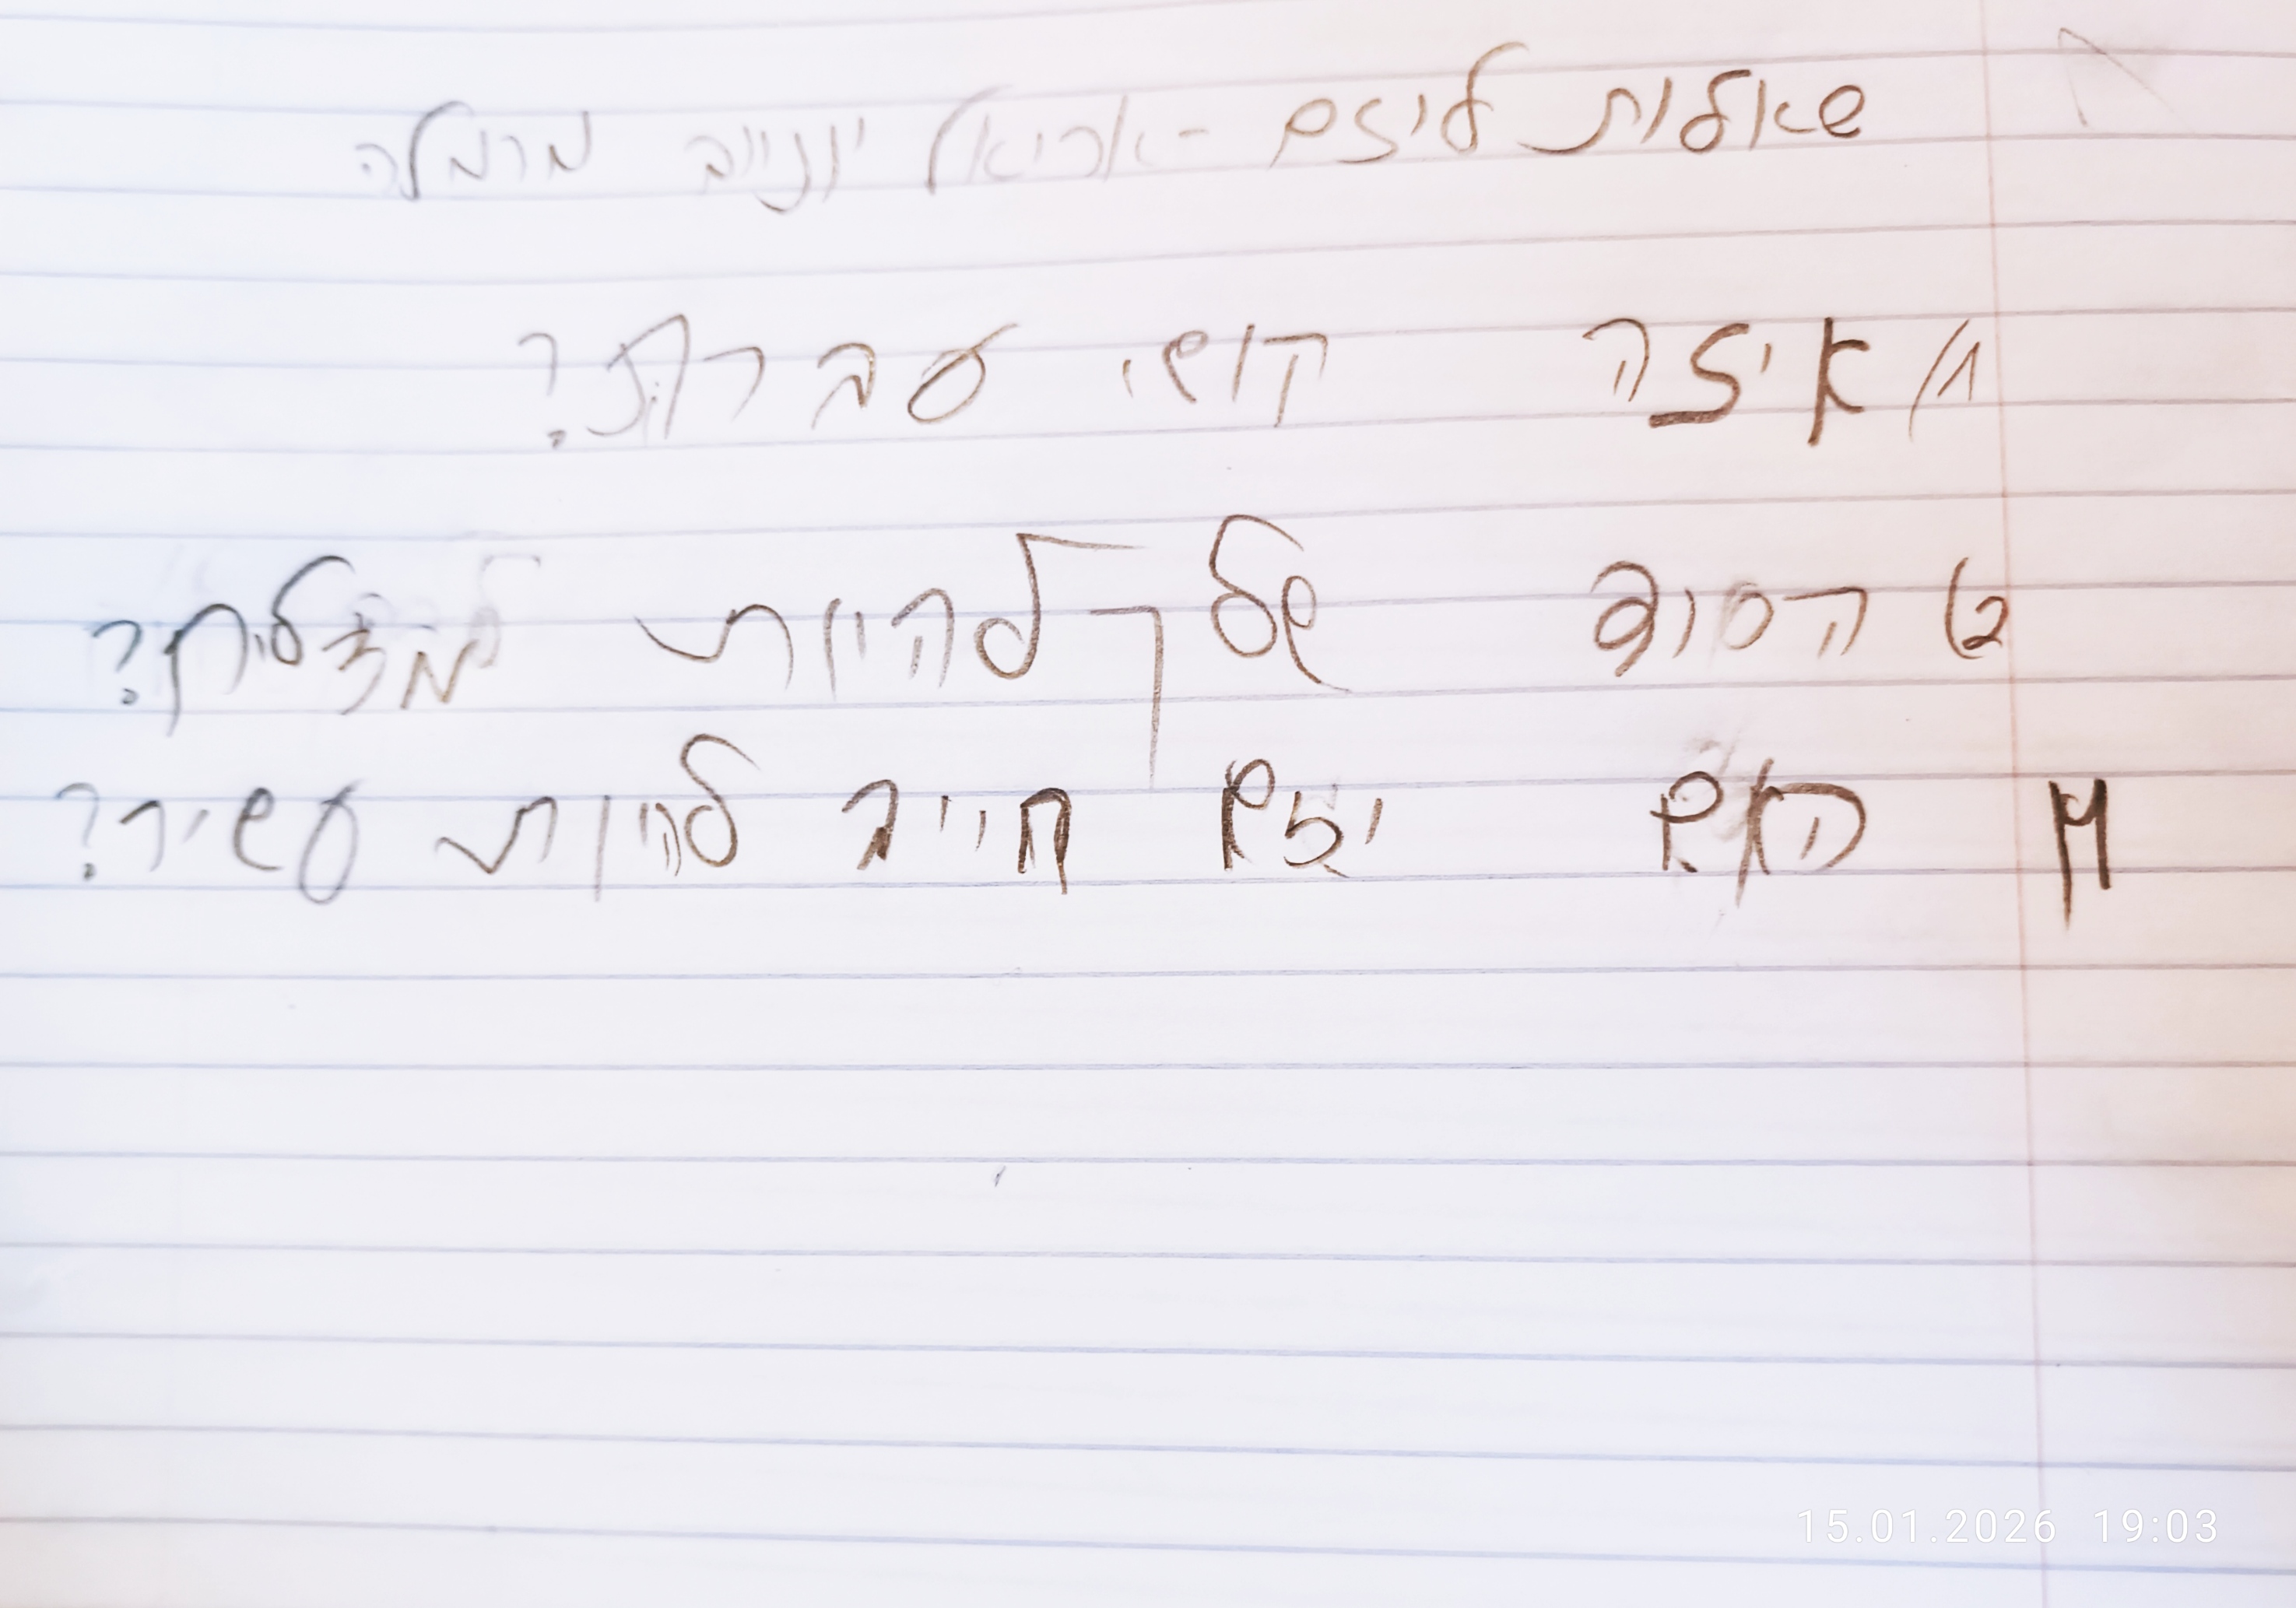 שאלות ליזם - אריאל יוניוב מרמלה
1) איזה קושי עברת?
2) הסוף שלך להיות מצליח?
האם יזם חייב להיות עשיר?
15.01.2026 19:03